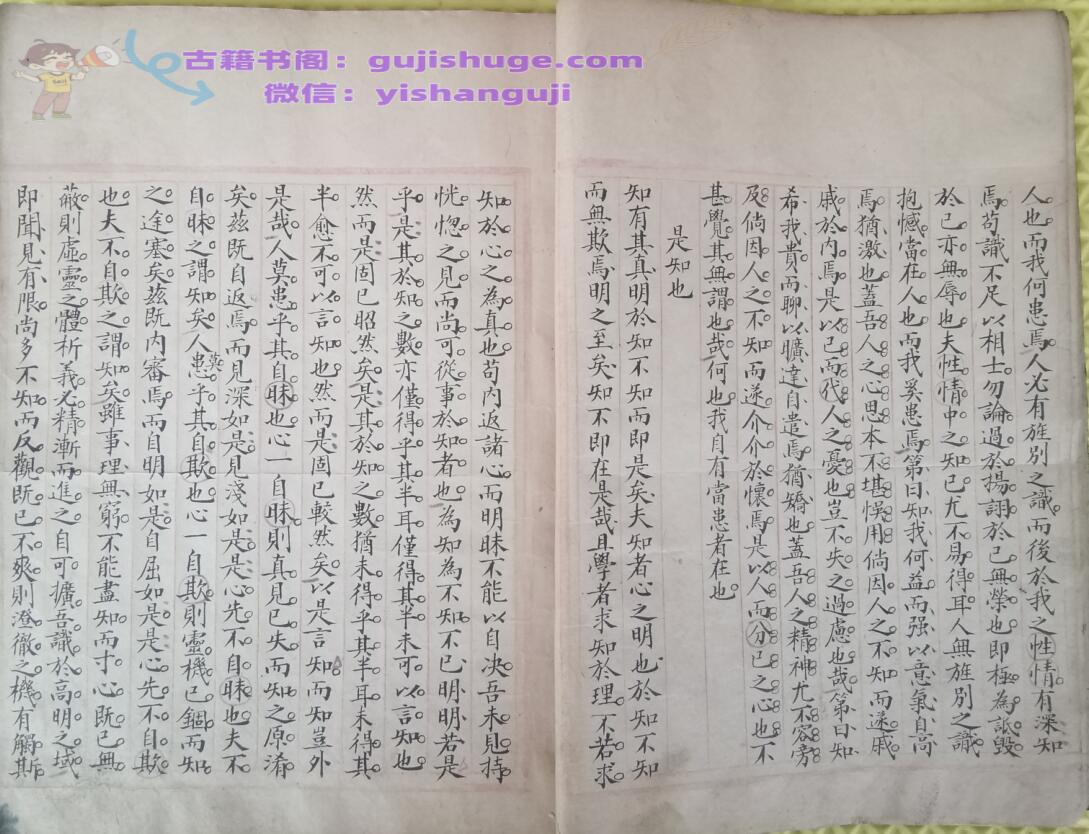 古籍书阁：gujishuge.com
微信：yishanguji
人也而我何患焉人必有旌別之識而後於我之性情有深知
焉苟識不足以相士勿論過於揚詡於已無榮也即極為詆毀
於已亦無辱也夫性情中之知已尤不易得耳人無旌別之識
抱憾當在人也而我奚患焉第曰知我何益而强以意氣自高
焉猶激也蓋吾人之心思本不堪悞用倘因人之不知而遂戚
戚於內焉是以已而代人之憂也豈不失之過慮也哉第曰知
希我貴而聊以曠達自遣焉猶矯也蓋吾人之精神尤不容旁
及倘因人之不知而遂介介於懷焉是以人而分已之心也不
甚覺其無謂也哉何也我自有當患者在也
是知也
知有其真明於知不知而即是矣夫知者心之明也於知不知
而無欺焉明之至矣知不即在是哉且學者求知於理不若求
知於心之為真也苟內返諸心而明昧不能以自决吾未見持
恍惚之見而尚可從事於知者也為知為不知不已明明若是
乎是其於知之數亦僅得乎其半耳僅得其半未可以言知也
然而是固已昭然矣是其於知之數猶未得乎其半耳未得其
半愈不可以言知也然而是固已較然矣以是言知而知豈外
是哉人莫患乎其自昧也心一自昧則真見已失而知之原淆
矣茲既自返焉而見深如是見淺如是是心先不自昧也夫不
自昧之謂知矣人莫患乎其自欺也心一自欺則靈機已錮而知
之途塞矣茲既內審焉而自明如是自屈如是是心先不自欺
也夫不自欺之謂知矣雖事理無窮不能盡知而寸心既已無
蔽則虛靈之體析義必精漸而進之自可擴吾識於高明之域
即聞見有限尚多不知而反觀既已不爽則澄徹之機有觸斯